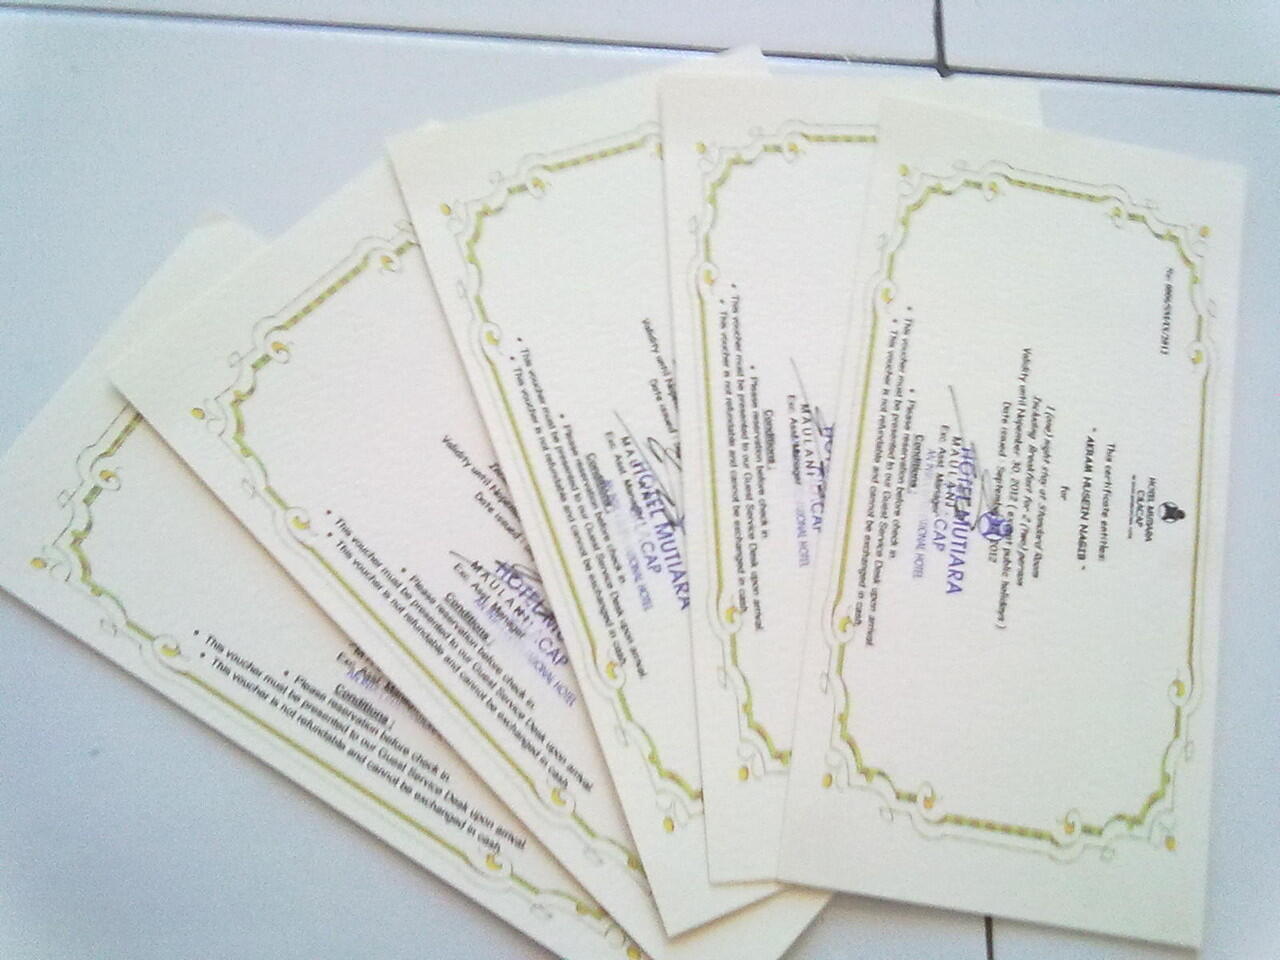 HOTEL MUTIARA
CILACAP
This certificate entitles:
" AKRAM HUSEIN NAGIB "
for
1 (one) night stay at Standard Room
Including Breakfast for 2 (two) persons
Validity until Nopember 30, 2012 ( except public holidays )
Date issued September 2012
HOTEL MUTIARA
CAP
MAULANI
Exc. Asst Manager
Conditions :
• Please reservation before check in
• This voucher must be presented to our Guest Service Desk upon arrival
• This voucher is not refundable and cannot be exchanged in cash.
MAULANI
Exc. Asst Manager
Conditions :
• Please reservation before check in
• This voucher must be presented to our Guest Service Desk upon arrival
• This voucher is not refundable and cannot be exchanged in cash.
Validity until
Date issued
HOTEL MUTIARA
CAP
Exc. Asst Manager
Conditions :
• Please reservation before check in
• This voucher must be presented to our Guest Service Desk upon arrival
• This voucher is not refundable and cannot be exchanged in cash.
Validity until
Date issued
MAULANI
CAP
Exc. Asst Manager
Conditions :
• Please reservation before check in
• This voucher must be presented to our Guest Service Desk upon arrival
• This voucher is not refundable and cannot be exchanged in cash.
Exc. Asst
Conditions :
• Please reservation before check in
• This voucher must be presented to our Guest Service Desk upon arrival
• This voucher is not refundable and cannot be exchanged in cash.